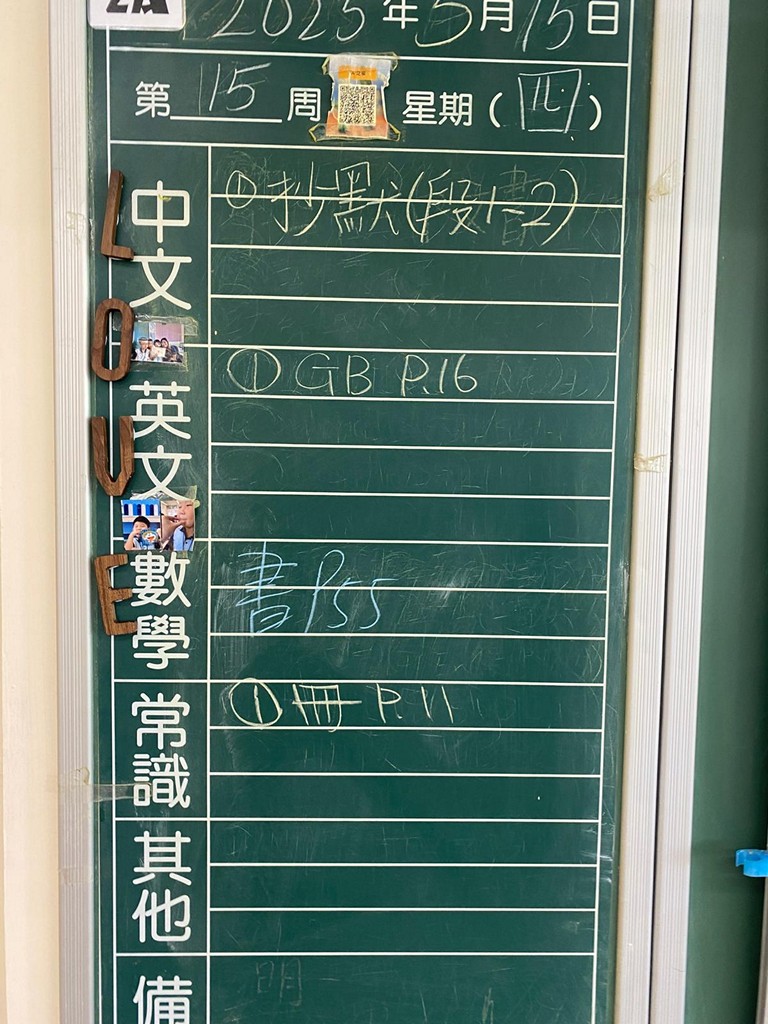 2A
2025年5月15日
第 15 周 星期(四)
L
O
V
E
中文
①抄默(段1-2)
英文
① GB P.16
數學
書P55
常識
①冊 P.11
其他
備
明